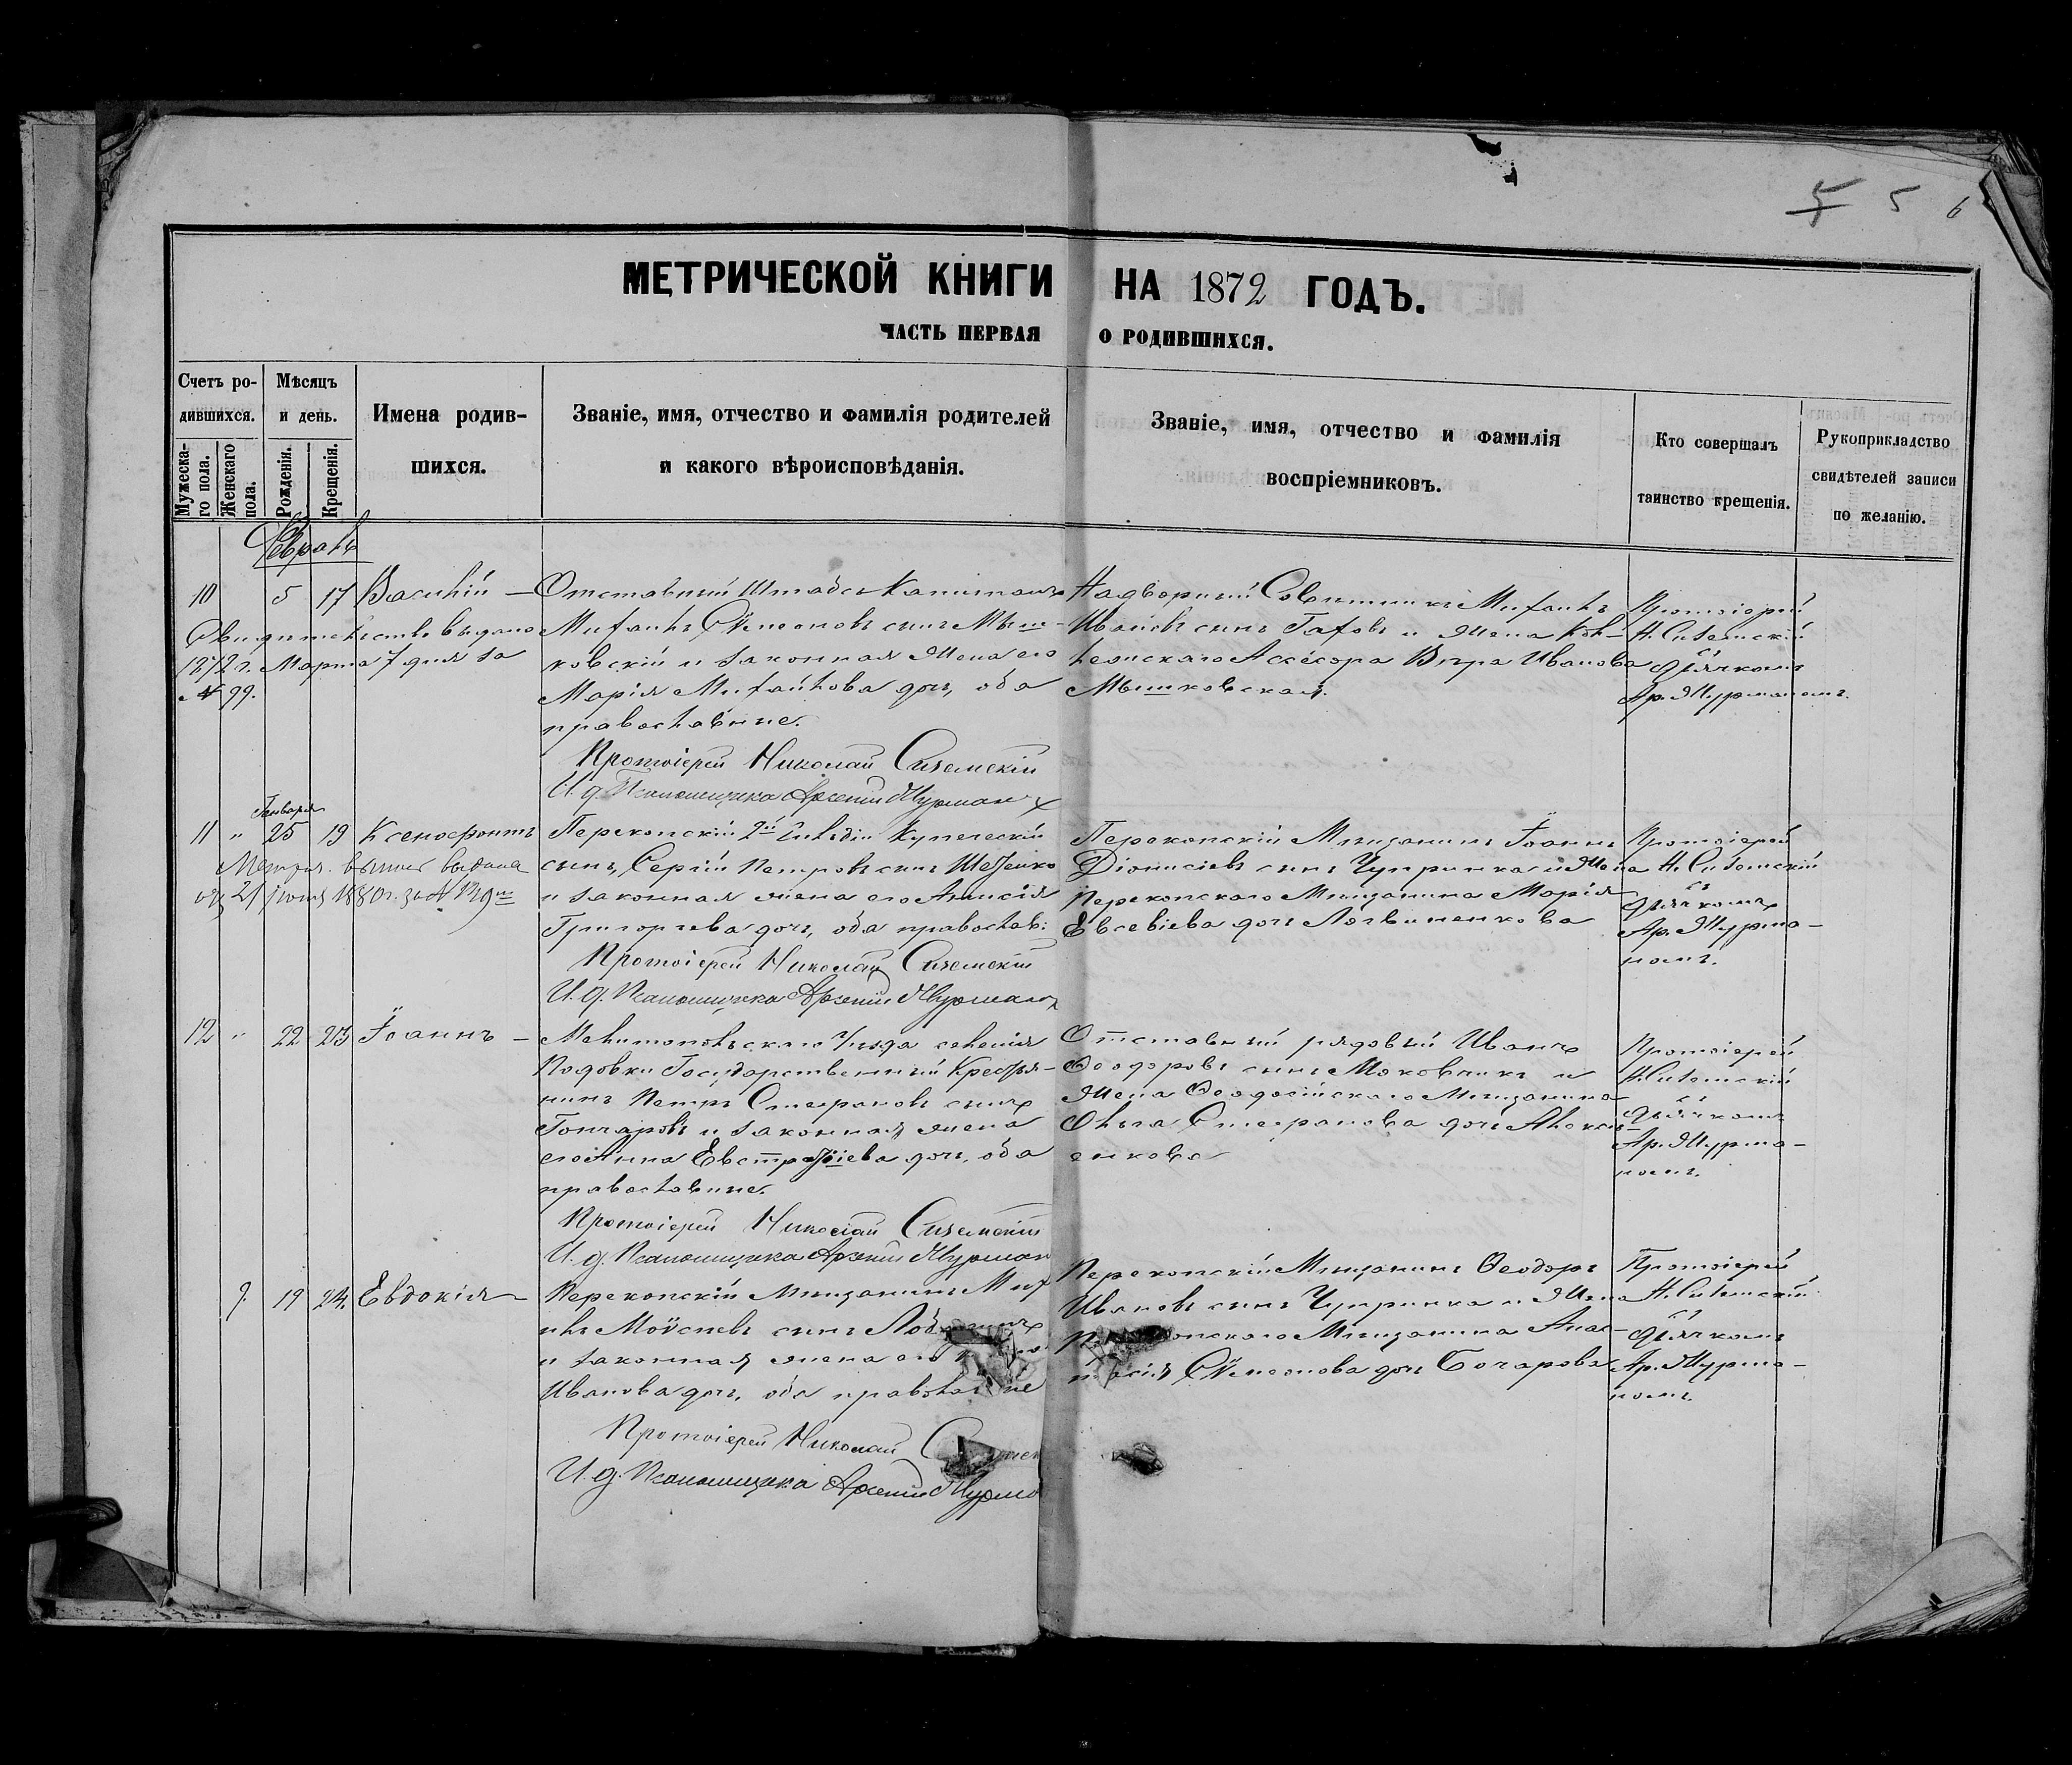 5 5 6
МЕТРИЧЕСКОЙ КНИГИ НА 1872 ГОДЪ.
ЧАСТЬ ПЕРВАЯ О РОДИВШИХСЯ.
Счетъ ро-
дившихся.
Мужеска-
го пола.
Женскаго
пола.
Мѣсяцъ
и день.
Рожденія.
Крещенія.
Имена родив-
шихся.
Званіе, имя, отчество и фамилія родителей
и какого вѣроисповѣданія.
Званіе, имя, отчество и фамилія
воспріемниковъ.
Кто совершалъ
таинство крещенія.
Рукоприкладство
свидѣтелей записи
по желанію.
Февраль
10 5 17 Василій —
Свидѣтельство выдано
1872 г. Марта 7 дня за
№ 99.
Отставный Штабсъ Капитанъ
Михаилъ Сѵмеоновъ сынъ Мыш-
ковскій и законная жена его
Марія Михайлова дочь, оба
православные.
Протоіерей Николай Сиземскій
И. д. Псаломщика Арсеній Журманъ
Надворный Совѣтникъ Михаилъ
Ивановъ сынъ и жена Кол-
лежскаго Ассесора Вѣра Иванова
Мышковская.
Протоіерей
Н. Сиземскій
съ
дьячкомъ
Ар. Журманомъ.
Января
11 " 25 19 Ксенофонтъ
Метрич. выпись выдана
21 1880 г. за №
Перекопскій 2й Гильдіи Купеческій
сынъ, Сергій Петровъ сынъ
и законная жена его Анисія
Григорьева дочь, оба православ:
Протоіерей Николай Сиземскій
И. д. Псаломщика Арсеній Журманъ
Перекопскій Мѣщанинъ Іоаннъ
Діонисіевъ сынъ Чупринка и Жена
Перекопскаго Мѣщанина Марія
Евсевіева дочь Логвиненкова
Протоіерей
Н. Сиземскій
съ
дьячкомъ
Ар. Журма-
номъ.
12 " 22 23 Іоаннъ —
Мелитопольскаго Уѣзда селенія
Подовки Государственный Крестья-
нинъ Петръ Стефановъ сынъ
Гончаровъ и законная жена
его Анна Евстрафіева дочь, оба
православные.
Протоіерей Николай Сиземскій
И. д. Псаломщика Арсеній Журманъ
Отставный рядовый Иванъ
Ѳеодоровъ сынъ Маковникъ и
Жена Ѳеодосійскаго Мѣщанина
Ольга Стефанова дочь Алексѣ-
енкова
Протоіерей
Н. Сиземскій
съ
дьячкомъ
Ар. Журма-
номъ.
9. 19 24. Евдокія —
Перекопскій Мѣщанинъ Миха
илъ Моѵсеевъ сынъ
и законная жена его
Иванова дочь, оба
Протоіерей Николай
И. д. Псаломщика Арсеній Журма
Перекопскій Мѣщанинъ Ѳеодоръ
Ивановъ сынъ Чупринка и Жена
Мѣщанина Анас-
Сѵмеонова дочь Бочарова
Протоіерей
Н. Сиземскій
съ
дьячкомъ
Ар. Журма-
номъ.